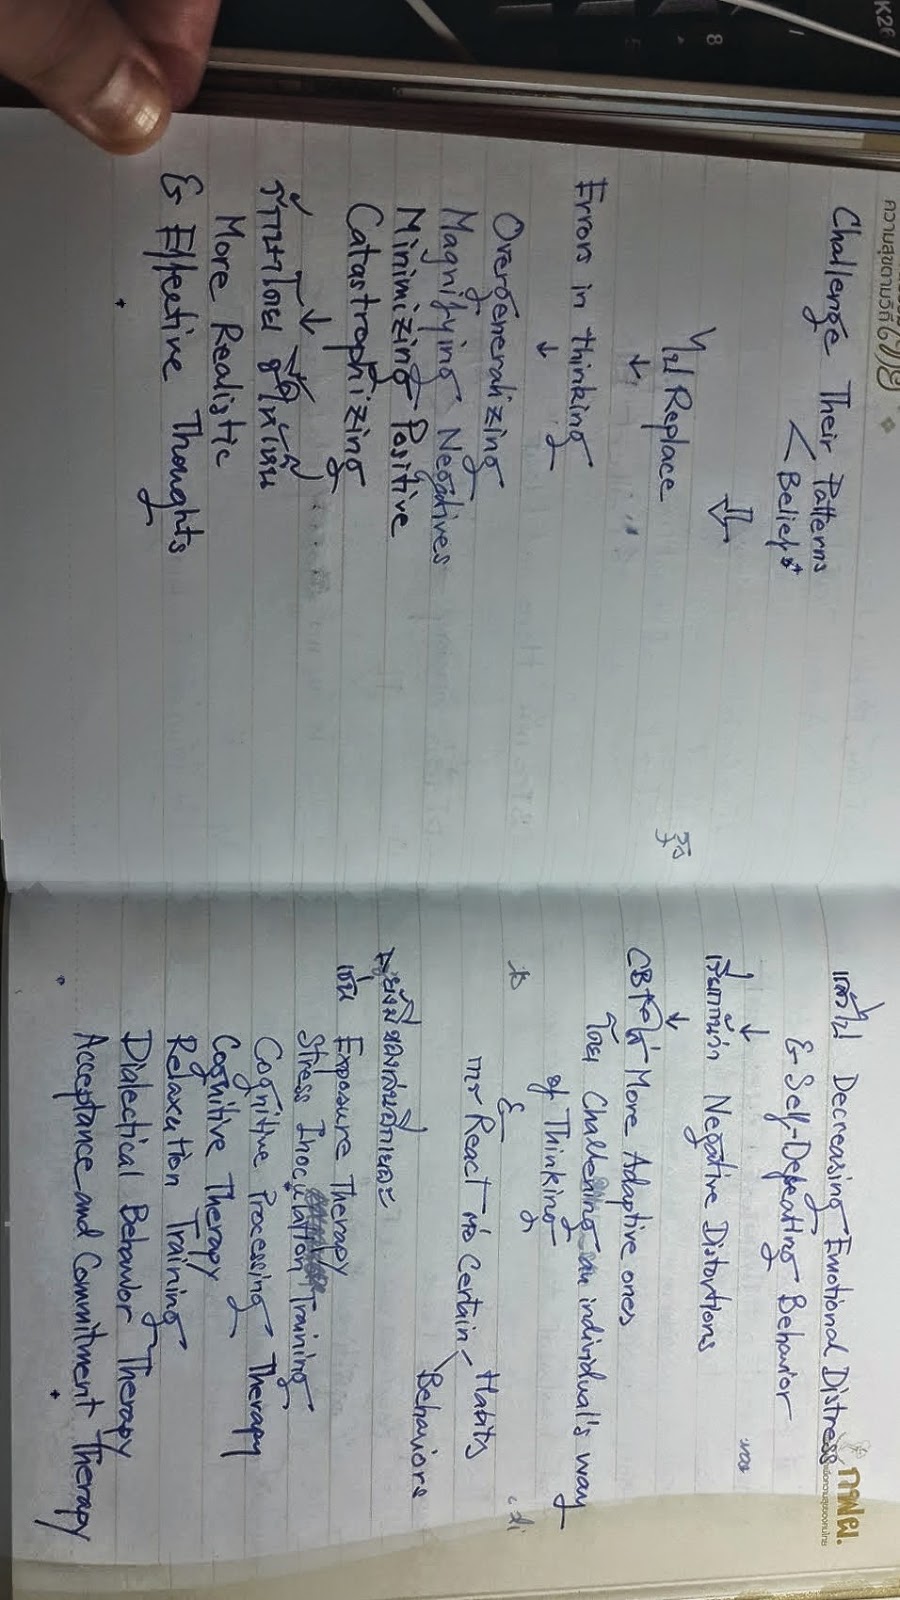 ความสุขตามวิถี
Challenge Their Patterns
Beliefs
ไป Replace
Errors in thinking
Overgeneralizing
Magnifying Negatives
Minimizing Positive
Catastrophizing
รักษาโดย ชี้ให้เห็น
More Realistic
& Effective Thoughts
กฟผ.
แล้วไป Decreasing Emotional Distress
& Self-Defeating Behavior
เรียกกันว่า Negative Distortions
CBT More Adaptive ones
โดย Challening an individual's way
of Thinking
&
การ React ต่อ Certain Habits
Behaviors
ยังมีของเล่นอีกเยอะ
เช่น Exposure Therapy
Stress Inoculation Training
Cognitive Processing Therapy
Cognitive Therapy
Relaxation Training
Dialectical Behavior Therapy
Acceptance and Commitment Therapy
K26
8